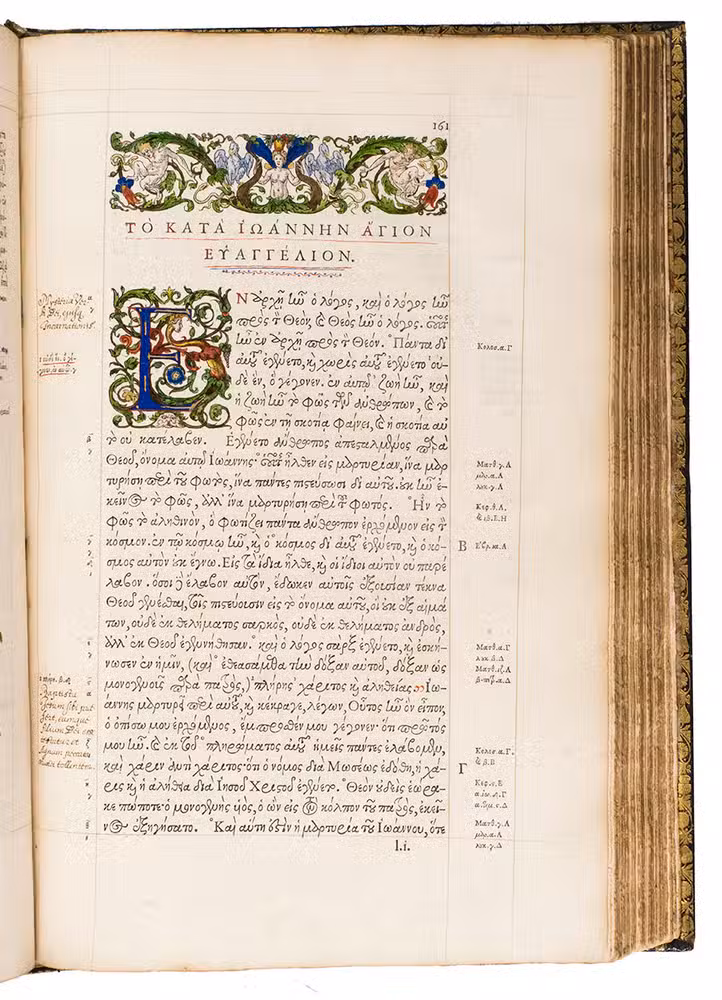 161
ΤῸ ΚΑΤᾺ ἸΩΆΝΝΗΝ ἍΓΙΟΝ
ΕΥ̓ΑΓΓΈΛΙΟΝ.
ΕΝ ἀρχῇ ἦν ὁ λόγος, καὶ ὁ λόγος ἦν
πρὸς τὸν Θεὸν, καὶ Θεὸς ἦν ὁ λόγος. οὗτος
ἦν ἐν ἀρχῇ πρὸς τὸν Θεόν. Πάντα δι'
αὐτοῦ ἐγένετο, καὶ χωρὶς αὐτοῦ ἐγένετο οὐ-
δὲ ἓν, ὃ γέγονεν. ἐν αὐτῷ ζωὴ ἦν, καὶ
ἡ ζωὴ ἦν τὸ φῶς τῶν ἀνθρώπων, καὶ τὸ
φῶς ἐν τῇ σκοτίᾳ φαίνει, καὶ ἡ σκοτία αὐ
τὸ οὐ κατέλαβεν. Ἐγένετο ἄνθρωπος ἀπεσταλμένος παρὰ
Θεοῦ, ὄνομα αὐτῷ Ἰωάννης· οὗτος ἦλθεν εἰς μαρτυρίαν, ἵνα μαρ
τυρήσῃ περὶ τοῦ φωτὸς, ἵνα πάντες πιστεύσωσι δι' αὐτοῦ. οὐκ ἦν ἐ-
κεῖνος τὸ φῶς, ἀλλ' ἵνα μαρτυρήσῃ περὶ τοῦ φωτός. Ἦν τὸ
φῶς τὸ ἀληθινὸν, ὃ φωτίζει πάντα ἄνθρωπον ἐρχόμενον εἰς τὸν
κόσμον. ἐν τῷ κόσμῳ ἦν, καὶ ὁ κόσμος δι' αὐτοῦ ἐγένετο, καὶ ὁ κό-
σμος αὐτὸν οὐκ ἔγνω. Εἰς τὰ ἴδια ἦλθε, καὶ οἱ ἴδιοι αὐτὸν οὐ παρέ
λαβον. ὅσοι δὲ ἔλαβον αὐτὸν, ἔδωκεν αὐτοῖς ἐξουσίαν τέκνα
Θεοῦ γενέσθαι, τοῖς πιστεύουσιν εἰς τὸ ὄνομα αὐτοῦ, οἳ οὐκ ἐξ αἱμά
των, οὐδὲ ἐκ θελήματος σαρκὸς, οὐδὲ ἐκ θελήματος ἀνδρὸς,
ἀλλ' ἐκ Θεοῦ ἐγεννήθησαν. καὶ ὁ λόγος σὰρξ ἐγένετο, καὶ ἐσκή-
νωσεν ἐν ἡμῖν, (καὶ ἐθεασάμεθα τὴν δόξαν αὐτοῦ, δόξαν ὡς
μονογενοῦς παρὰ πατρὸς,) πλήρης χάριτος καὶ ἀληθείας. Ἰω-
άννης μαρτυρεῖ περὶ αὐτοῦ, καὶ κέκραγε, λέγων, Οὗτος ἦν ὃν εἶπον,
ὁ ὀπίσω μου ἐρχόμενος, ἔμπροσθέν μου γέγονεν· ὅτι πρῶτός
μου ἦν. καὶ ἐκ τοῦ πληρώματος αὐτοῦ ἡμεῖς πάντες ἐλάβομεν,
καὶ χάριν ἀντὶ χάριτος· ὅτι ὁ νόμος διὰ Μωσέως ἐδόθη, ἡ χά-
ρις καὶ ἡ ἀλήθεια διὰ Ἰησοῦ Χριστοῦ ἐγένετο. Θεὸν οὐδεὶς ἑώρα-
κε πώποτε· ὁ μονογενὴς υἱὸς, ὁ ὢν εἰς τὸν κόλπον τοῦ πατρὸς, ἐκεῖ-
νος ἐξηγήσατο. Καὶ αὕτη ἐστὶν ἡ μαρτυρία τοῦ Ἰωάννου, ὅτε
l.i.
Κολοσ.α.Γ
Ματθ.γ.Α
μάρ.α.Α
λουκ.γ.Α
Β
Ἑβρ.ια.Α
Ματθ.α.Γ
λουκ.β.Δ
Ματθ.ιζ.Α
β.πέτρ.α.Δ
Κολοσ.α.Γ.
καὶ β.Β
Γ
Ματθ.γ.Α
μάρ.α.Α
λουκ.γ.Δ